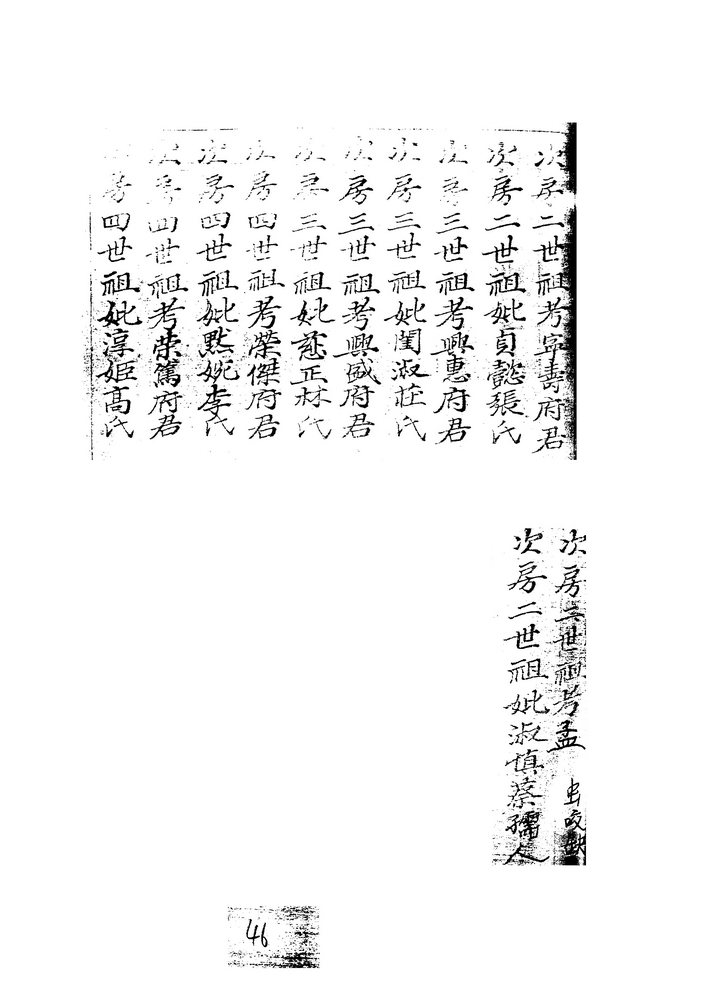 次房二世祖考字壽府君
次房二世祖妣貞懿張氏
次房三世祖考興惠府君
次房三世祖妣閨淑莊氏
次房三世祖考興威府君
次房三世祖妣慈正林氏
次房四世祖考榮傑府君
次房四世祖妣默婉李氏
次房四世祖考荣篤府君
次房四世祖妣淳姬高氏
次房二世祖考孟 虫咬缺
次房二世祖妣淑慎蔡孺人
46